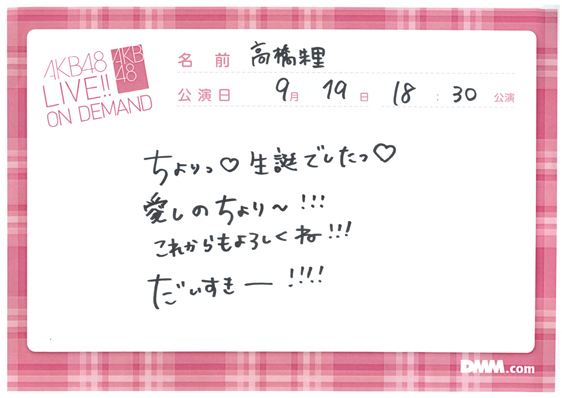 AKB48
LIVE!!
ON DEMAND
AKB
48
名前 高橋朱里
公演日 9月 19日 18:30 公演
ちよりっ♡生誕でしたっ♡
愛しのちより〜!!!
これからもよろしくね!!!
だいすきー!!!!
DMM.com